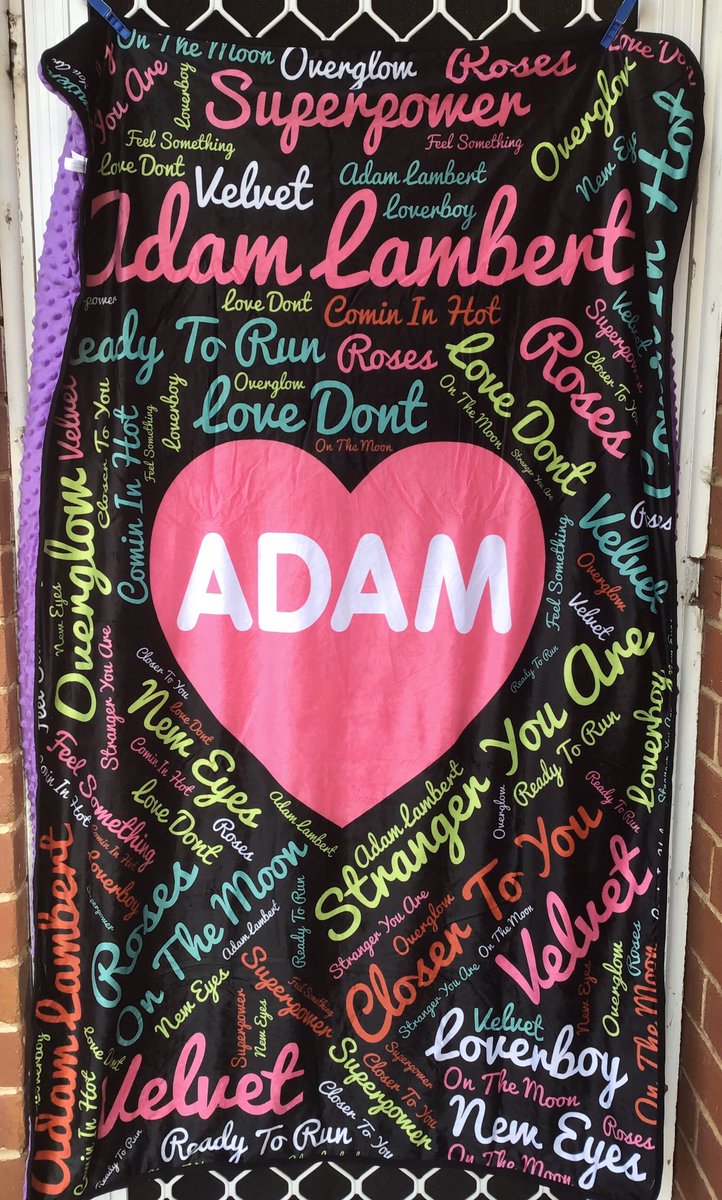 On The Moon
Overglow
Roses
Love Dont
You Are
Loverboy
Superpower
Overglow
Feel Something
Feel Something
Love Dont
Velvet
Adam Lambert
Loverboy
New Eyes
Hot
Adam Lambert
Love Dont
Comin In Hot
Velvet
Superpower
Ready To Run
Roses
Love Dont
Roses
Closer To You
Overglow
On The Moon
Love Dont
On The Moon
Stranger You Are
Velvet
Closer To You
Comin In Hot
Feel Something
Loverboy
Roses
Velvet
Overglow
ADAM
Feel Something
Overglow
Velvet
New Eyes
Stranger You Are
Closer To You
Ready To Run
Love Dont
New Eyes
Comin In Hot
Love Dont
Roses
Feel Something
Comin In Hot
Comin In Hot
Loverboy
Superpower
Adam Lambert
Adam Lambert
Stranger You Are
Overglow
Ready To Run
Ready To Run
Loverboy
Adam Lambert
Roses
On The Moon
Adam Lambert
Ready To Run
Stranger You Are
Overglow
Closer To You
On The Moon
Stranger You Are
Velvet
New Eyes
Superpower
New Eyes
Superpower
Feel Something
Overglow
Roses
New Eyes
On The Moon
Loverboy
Love Dont
Comin In Hot
Velvet
Superpower
Superpower
Closer To You
Closer To You
Velvet
Loverboy
On The Moon
New Eyes
Roses
On The Moon
Ready To Run
Ready To Run